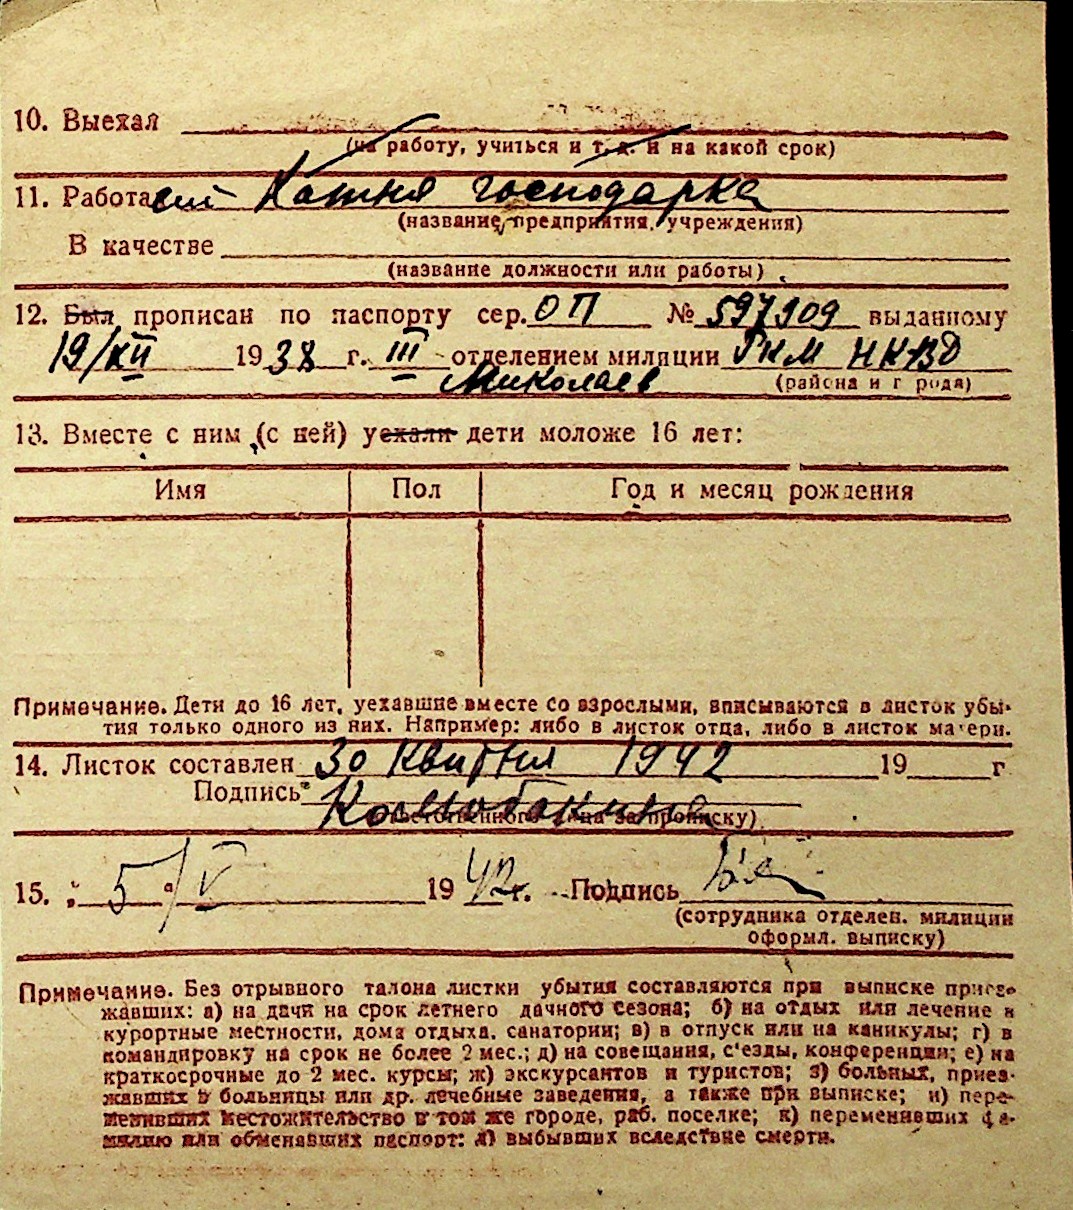 10. Выехал
(на работу, учиться и т. д. и на какой срок)
11. Работа Хатня господарка
(название предприятия, учреждения)
В качестве
(название должности или работы)
12. Был прописан по паспорту сер. ОП № 597909 выданному
19/XII 1938 г. III отделением милиции РКМ НКВД
Миколаев (района и г рода)
13. Вместе с ним (с ней) уехали дети моложе 16 лет:
Имя Пол Год и месяц рождения
Примечание. Дети до 16 лет, уехавшие вместе со взрослыми, вписываются в листок убы-
тия только одного из них. Например: либо в листок отца, либо в листок матери.
14. Листок составлен 30 Квитня 1942 19 г
Подпись
ответственного лица за прописку)
15. 5/V 1942 г. Подпись
(сотрудника отделен. милиции
оформл. выписку)
Примечание. Без отрывного талона листки убытия составляются при выписке приез-
жавших: а) на дачи на срок летнего дачного сезона; б) на отдых или лечение в
курортные местности, дома отдыха, санатории; в) в отпуск или на каникулы; г) в
командировку на срок не более 2 мес.; д) на совещания, с'езды, конференции; е) на
краткосрочные до 2 мес. курсы; ж) экскурсантов и туристов; з) больных, приез-
жавших в больницы или др. лечебные заведения, а также при выписке; и) пере-
менивших местожительство в том же городе, раб. поселке; к) переменивших фа-
милию или обменявших паспорт: л) выбывших вследствие смерти.